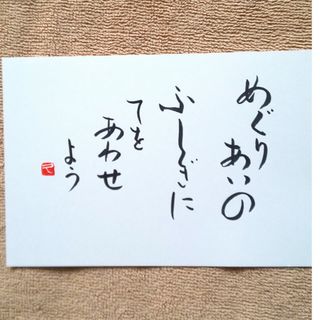 めぐり
あいの
ふしぎに
てを
あわせ
よう